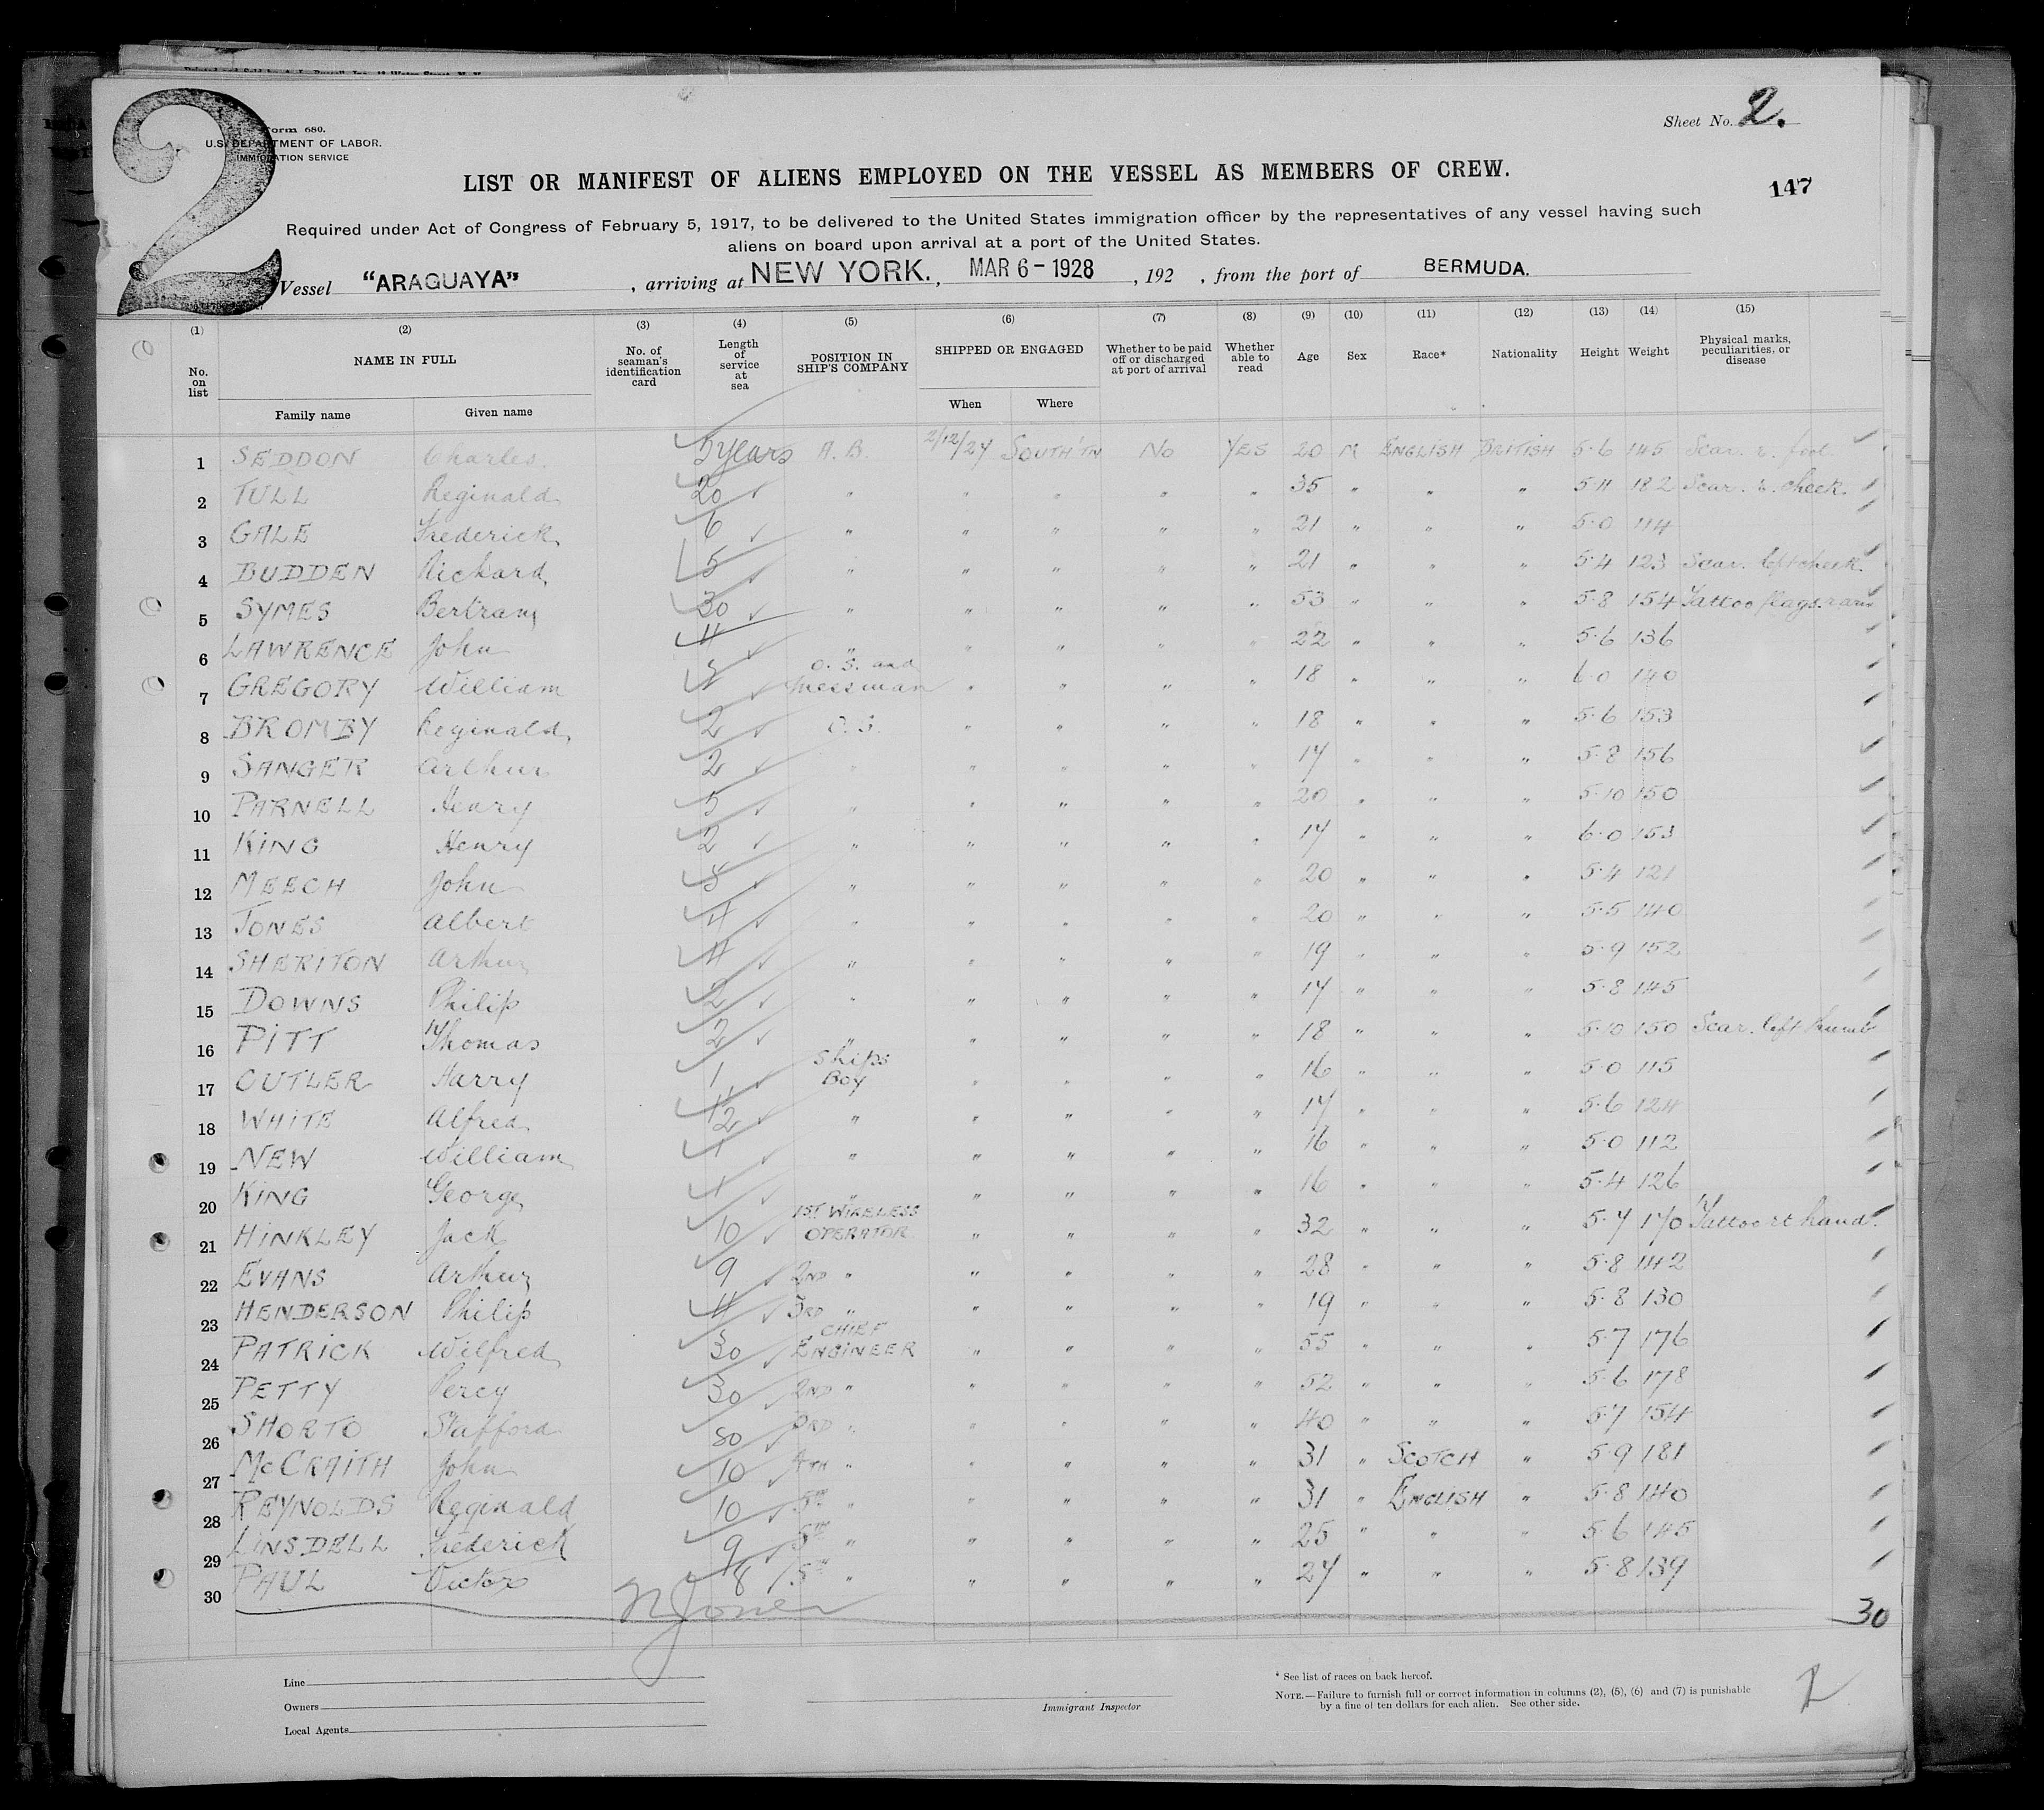 2
Form 680.
U.S. DEPARTMENT OF LABOR.
IMMIGRATION SERVICE
Sheet No. 2.
LIST OR MANIFEST OF ALIENS EMPLOYED ON THE VESSEL AS MEMBERS OF CREW.
147
Required under Act of Congress of February 5, 1917, to be delivered to the United States immigration officer by the representatives of any vessel having such
aliens on board upon arrival at a port of the United States.
Vessel "ARAGUAYA", arriving at NEW YORK., MAR 6-1928, 192 , from the port of BERMUDA.
(1) (2) (3) (4) (5) (6) (7) (8) (9) (10) (11) (12) (13) (14) (15)
No. on list NAME IN FULL No. of seaman's identification card Length of service at sea POSITION IN SHIP'S COMPANY SHIPPED OR ENGAGED Whether to be paid off or discharged at port of arrival Whether able to read Age Sex Race* Nationality Height Weight Physical marks, peculiarities, or disease
Family name Given name When Where
1 SEDDON Charles. 5 years A.B. 2/12/27 SOUTH'TN No YES 20 M ENGLISH BRITISH 5-6 145 Scar. r. foot
2 TULL Reginald 20 " " " " " 35 " " " 5-11 182 Scar. r. cheek.
3 GALE Frederick 6 " " " " " 21 " " " 5-0 114
4 BUDDEN Richard 5 " " " " " 21 " " " 5-4 123 Scar. left cheek.
5 SYMES Bertram 30 " " " " " 53 " " " 5-8 154 Tattoo flags. r arm
6 LAWRENCE John 4 " " " " " 22 " " " 5-6 136
7 GREGORY William 2 O.S. and messman " " " " 18 " " " 6-0 140
8 BROMBY Reginald 2 O.S. " " " " 18 " " " 5-6 153
9 SANGER Arthur 2 " " " " " 17 " " " 5-8 156
10 PARNELL Henry 5 " " " " " 20 " " " 5-10 150
11 KING Henry 2 " " " " " 17 " " " 6-0 153
12 MEECH John 5 " " " " " 20 " " " 5-4 121
13 JONES Albert 4 " " " " " 20 " " " 5-5 140
14 SHERITON Arthur 4 " " " " " 19 " " " 5-9 152
15 DOWNS Philip 2 " " " " " 17 " " " 5-8 145
16 PITT Thomas 2 " " " " " 18 " " " 5-10 150 Scar. left thumb
17 CUTLER Harry 1 Ships Boy " " " " 16 " " " 5-0 115
18 WHITE Alfred 1/2 " " " " " 17 " " " 5-6 124
19 NEW William 1 " " " " " 16 " " " 5-0 112
20 KING George 1 " " " " " 16 " " " 5-4 126
21 HINKLEY Jack 10 1ST WIRELESS OPERATOR " " " " 32 " " " 5-7 170 Tattoo rt hand.
22 EVANS Arthur 9 2ND " " " " " 28 " " " 5-8 142
23 HENDERSON Philip 4 3RD " " " " " 19 " " " 5-8 130
24 PATRICK Wilfred 30 CHIEF ENGINEER " " " " 55 " " " 5-7 176
25 PETTY Percy 30 2ND " " " " " 52 " " " 5-6 178
26 SHORTO Stafford 3RD " " " " " 40 " " " 5-7 154
27 McCRAITH John 10 4TH " " " " " 31 " SCOTCH " 5-9 181
28 REYNOLDS Reginald 10 5TH " " " " " 31 " ENGLISH " 5-8 140
29 LINSDELL Frederick 9 5TH " " " " " 25 " " " 5-6 145
30 PAUL Victor 8 5TH " " " " " 27 " " " 5-8 139
30
Line
Owners
Local Agents
Immigrant Inspector
* See list of races on back hereof.
NOTE.—Failure to furnish full or correct information in columns (2), (5), (6) and (7) is punishable
by a fine of ten dollars for each alien. See other side.